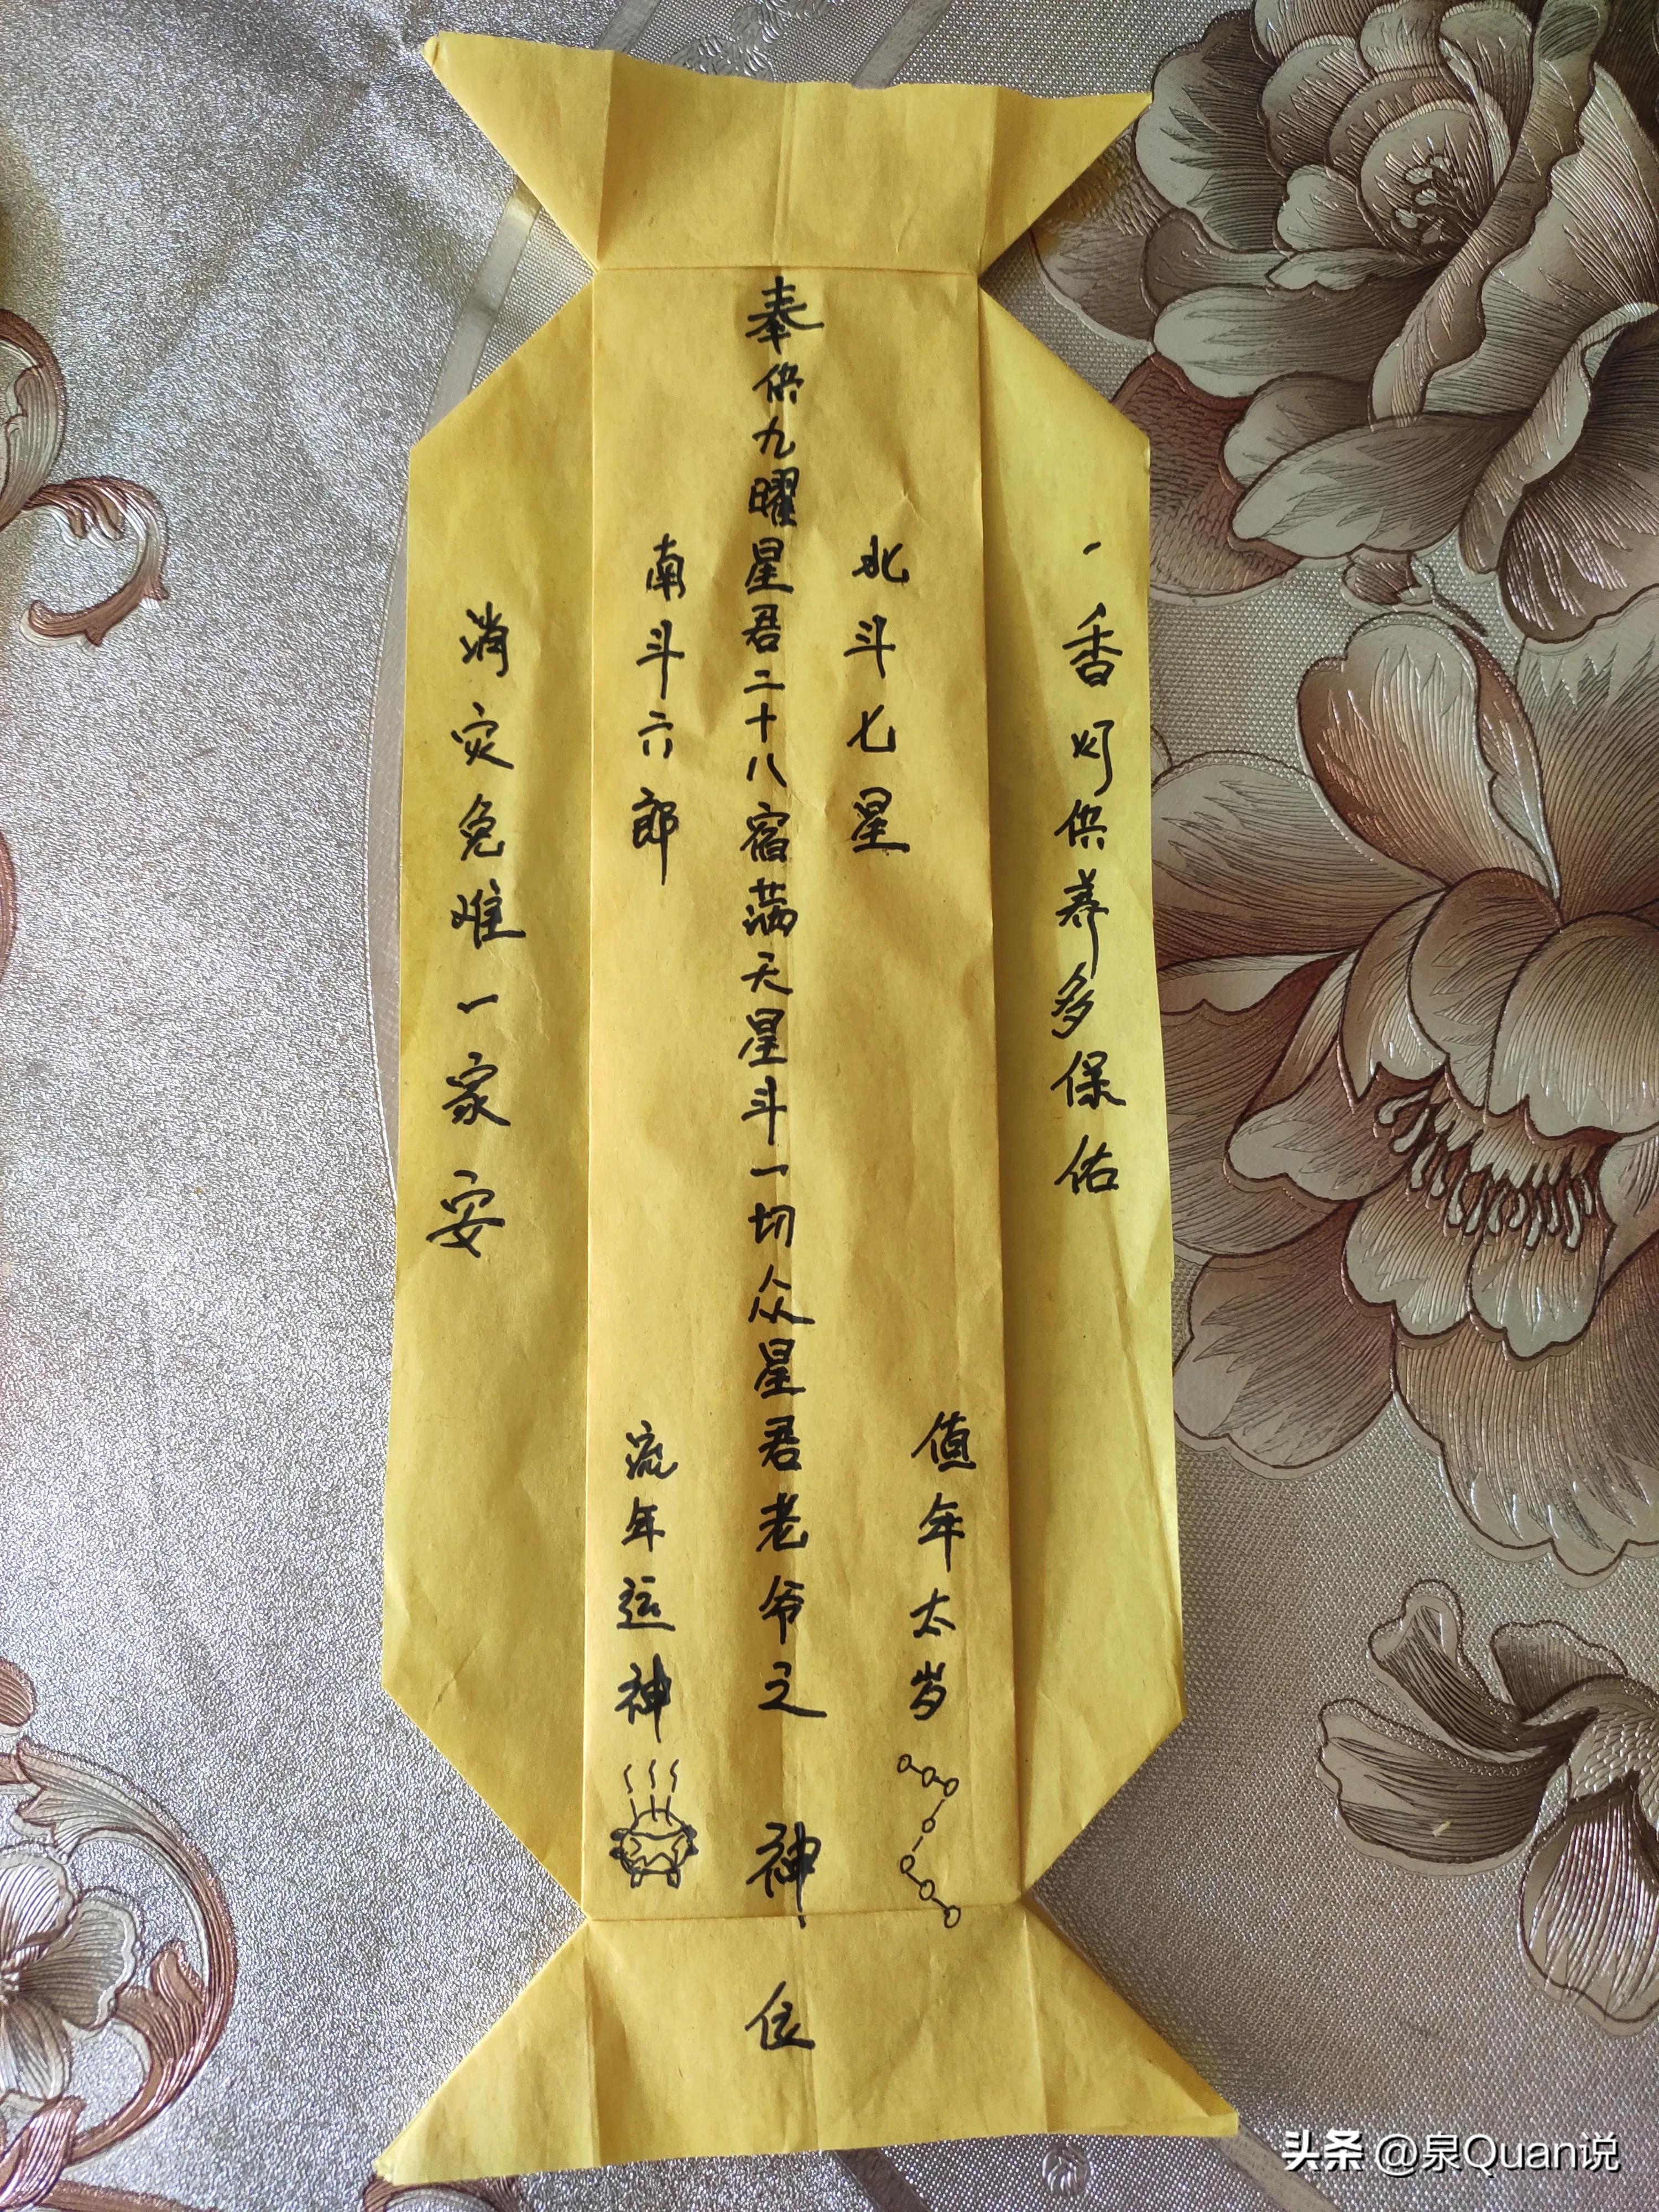 一香灯供养多保佑
北斗七星
值年太岁
奉供九曜星君二十八宿满天星斗一切众星君老爷之神位
南斗六郎
流年运神
消灾免难一家安
头条 @泉Quan说